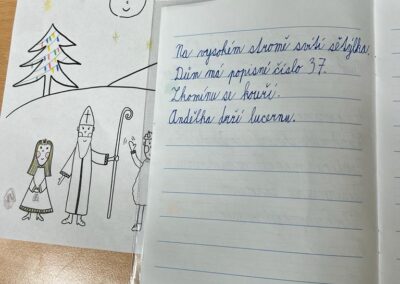 Na vysokém stromě svítí světýlka.
Dům má popisné číslo 37.
Z komínu se kouří.
Andělka drží lucernu.